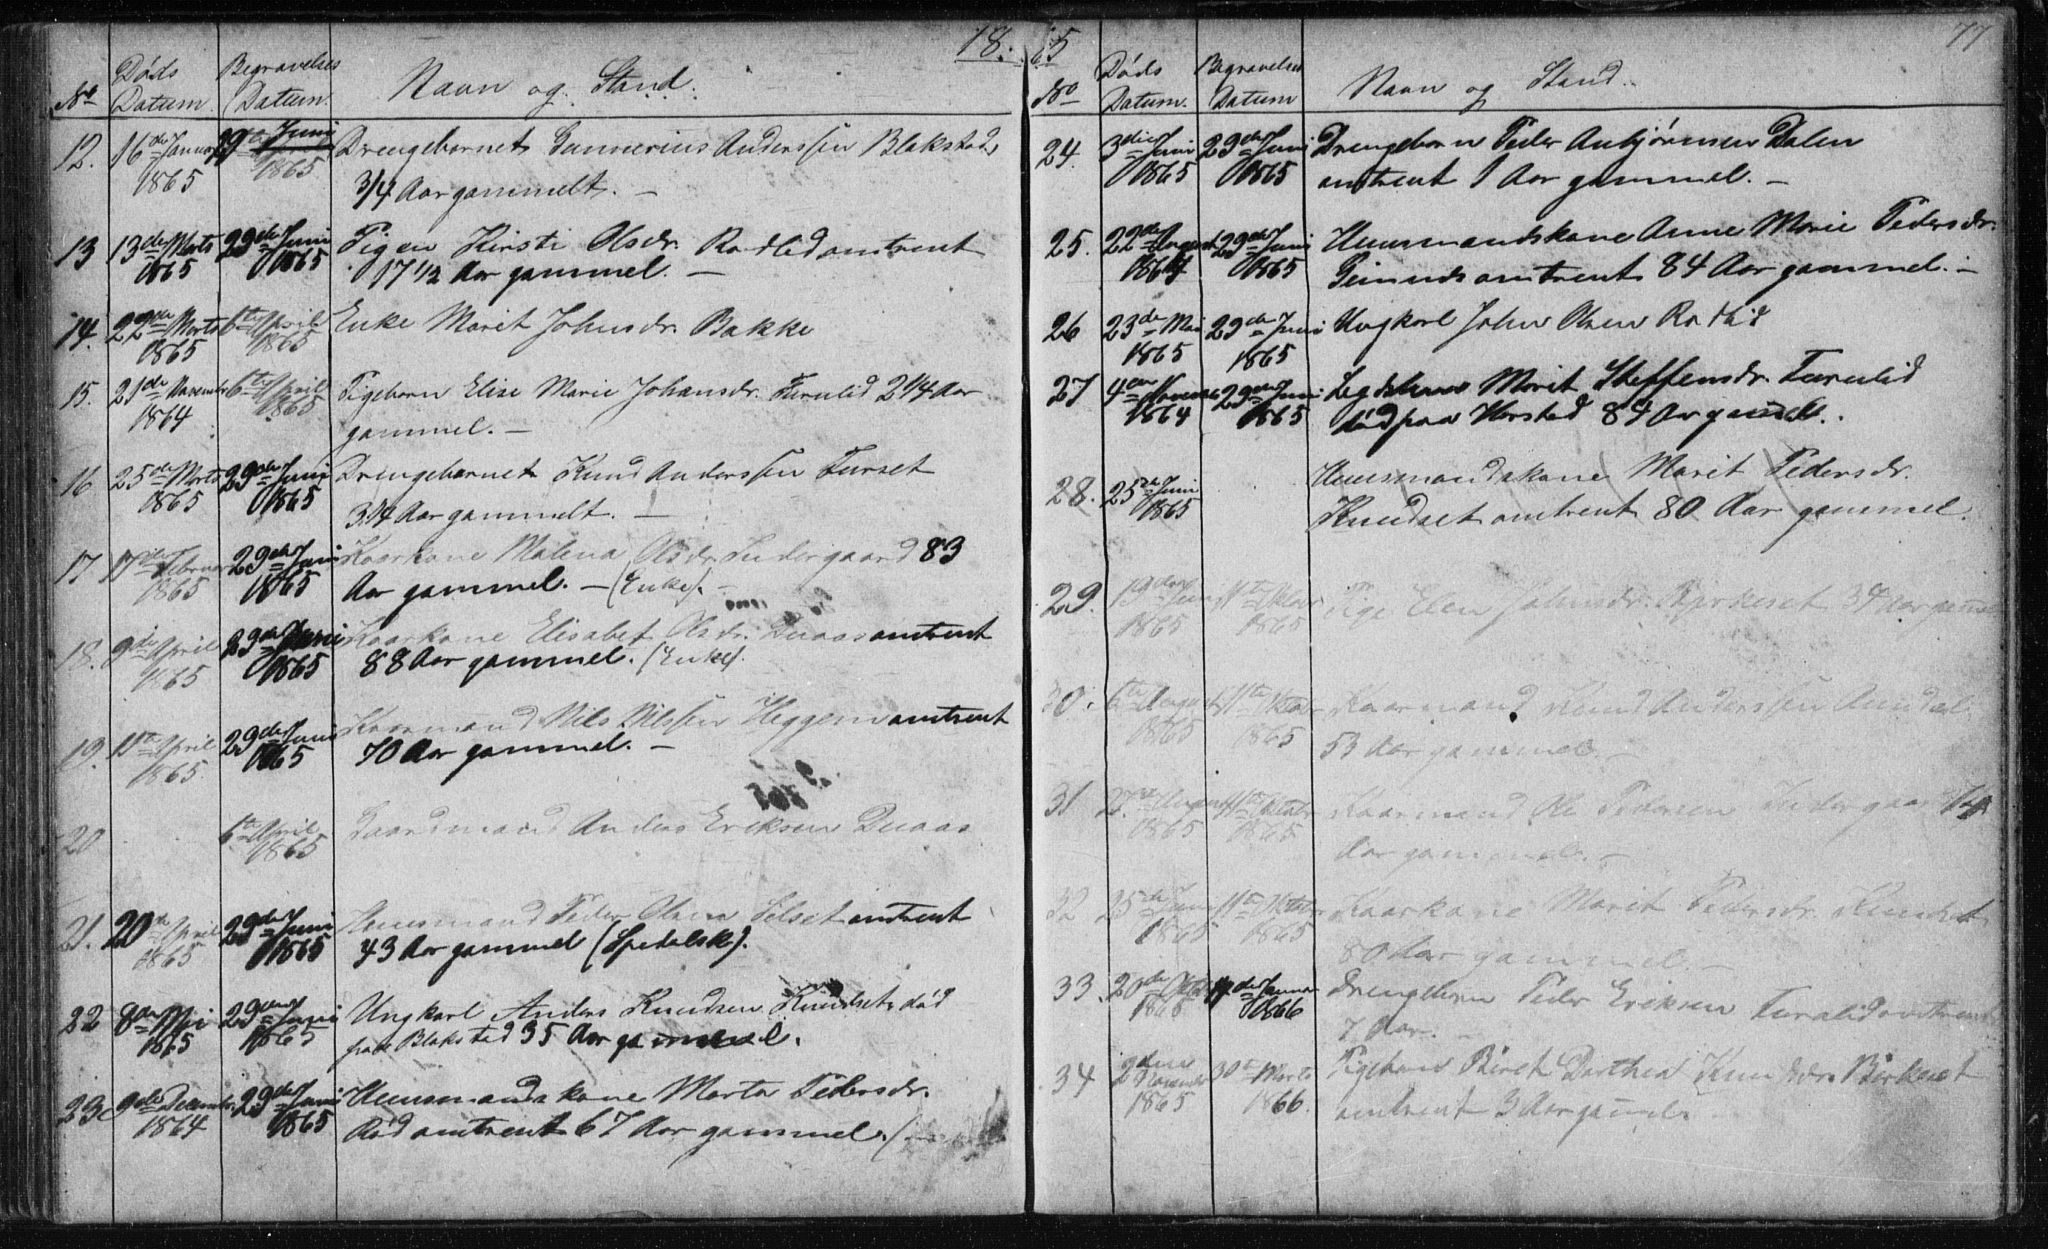 18.
No Døds Datum. Begravelses Datum. Navn og Stand.
12. 16de Januar 1865 Juni 1865 Drengebarnet Gunnerius Anderssen Blakstad
3/4 Aar gammelt. —
13 13de Marts 1865 29de Juni 1865 Pigen Kirsti Olsdr. Rødlid omtrent
17 1/2 Aar gammel. —
14. 22de Marts 1865 6te April 1865 Enke Marit Johnsdr. Bakke
15. 21de November 1864 6te April 1865 Pigebarn Elise Marie Johansdr. Furulid 2 1/4 Aar
gammel. —
16 25de Marts 1865 29de Juni 1865 Drengebarnet Knud Anderssen Furset
3/4 Aar gammelt. —
17. 17de Februar 1865 29de Juni 1865 Kaarkone Malena Olsdr. Indergaard 83
Aar gammel. — (Enke). —
18. 9de April 1865 29de Juni 1865 Kaarkone Elisabet Olsdr. Duaas omtrent
88 Aar gammel. (Enke).
19. 11te April 1865. 29de Juni 1865 Kaarmand Nils Nilssen Heggem omtrent
70 Aar gammel. —
20 6te April 1865 Gaardmand Anders Eriksen Duaas
21. 20de April 1865 29de Juni 1865 Huusmand Peder Olsen Selset omtrent
43 Aar gammel (Spedalsk).
22 8de Mai 1865 29de Juni 1865 Ungkarl Anders Knudsen Knudset, død
paa Blakstad 35 Aar gammel.
23. 9de December 1864 29de Juni 1865 Huusmandskone Marta Pedersdr.
Rød omtrent 67 Aar gammel. —
65
77
No Døds Datum. Begravelses Datum Navn og Stand.
24. 3die Juni 1865 29de Juni 1865 Drengebarn Peder Anbjørnsen Dalen
omtrent 1 Aar gammel. —
25. 22de August 1864 29de Juni 1865 Huusmandskone Anne Marie Pedersdr.
omtrent 84 Aar gammel. —
26 23de Mai 1865 29de Juni 1865 Ungkarl John Olsen Rødlid
27 4de November 1864 29de Juni 1865 Marit Steffensdr. Furulid
død paa Harstad 84 Aar gammel.
28. 25de Juni 1865 Huusmandskone Marit Pedersdr.
Knudset omtrent 80 Aar gammel.
29. 19de Juni 1865 11te Oktober 1865 Pige Elen Johnsdr. Byrkeset 34 Aar gammel
30. 6te August 1865 11te Oktober 1865 Kaarmand Knud Anderssen Aundal
53 Aar gammel. —
31 August 1865 11te Oktober 1865 Kaarmand Ole Pedersen Indergaard
Aar gammel. —
32 25de Juni 1865 11te Oktober 1865 Kaarkone Marit Pedersdr. Knudset
80 Aar gammel. —
33. 20de Oktbr 1865 Januar 1866 Drengebarn Peder Eriksen Furulid omtrent
7 Aar. —
34 2den November 1865 30te Marts 1866. Pigebarn Beret Dorthea Knudsdr. Birkeset
omtrent 3 Aar gammel.